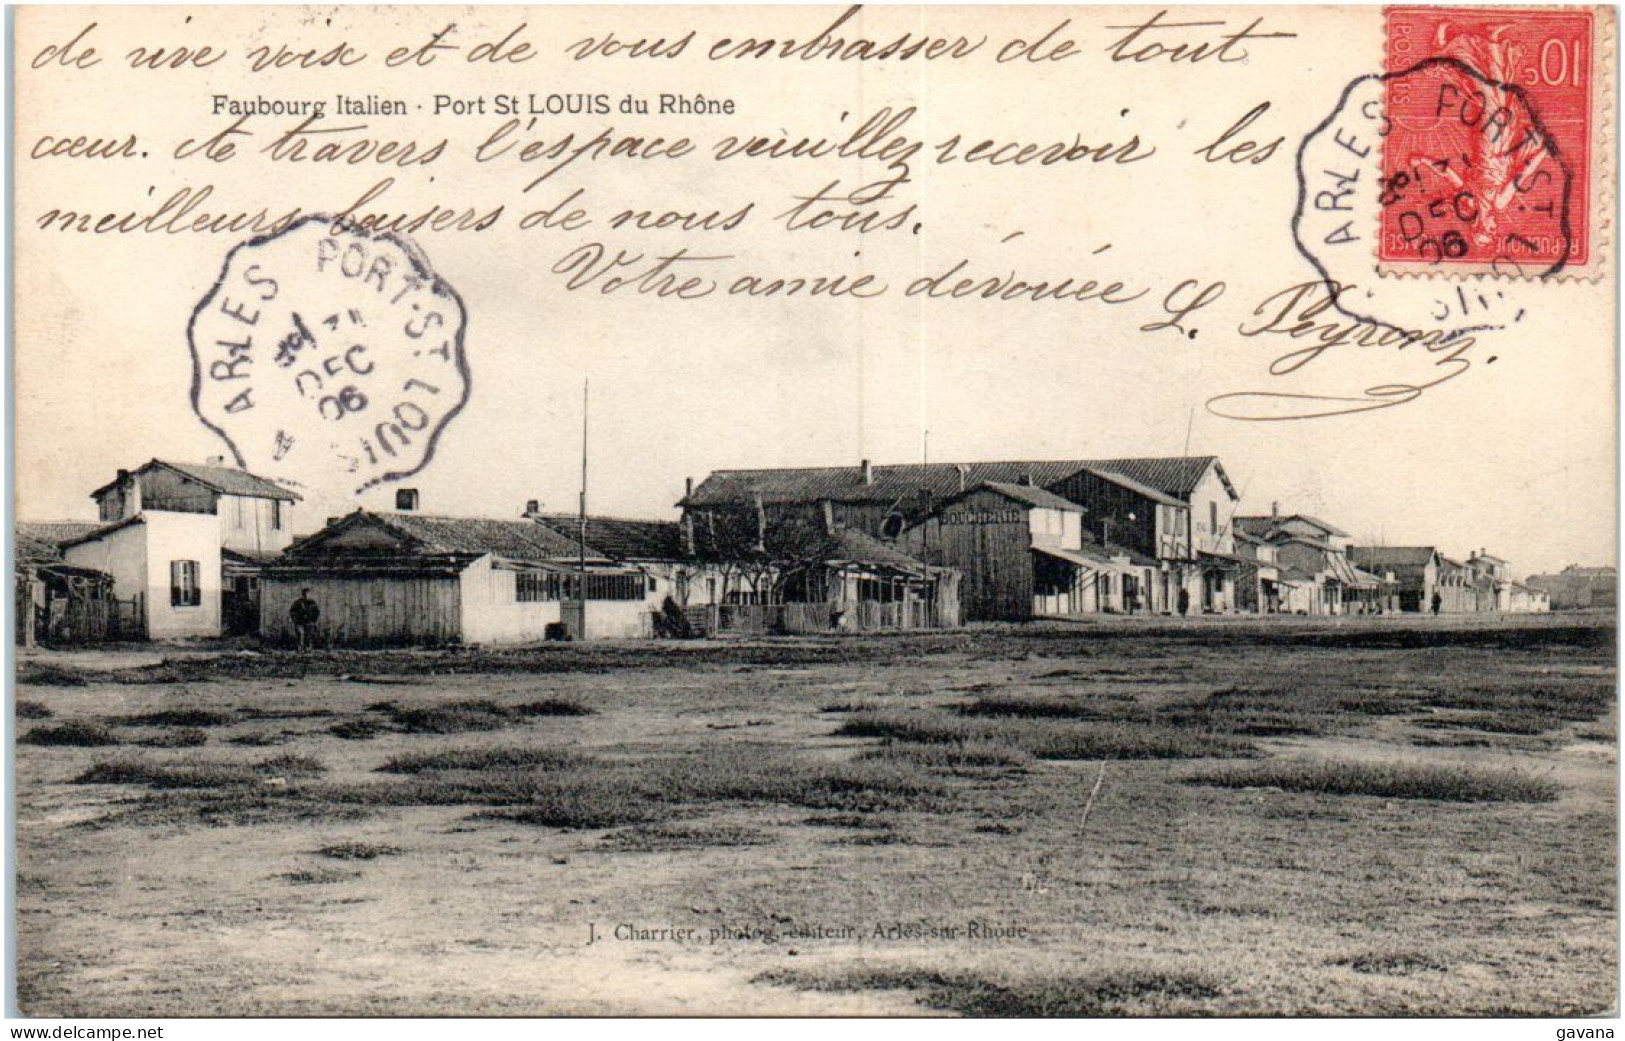 de vive voix et de vous embrasser de tout
Faubourg Italien · Port St LOUIS du Rhône
cœur. A travers l'espace veuillez recevoir les
meilleurs baisers de nous tous.
Votre amie dévouée
L. Peyron
10c
POSTES
REPUBLIQUE FRANÇAISE
ARLES A PORT-ST LOUIS
31
DEC
06
ARLES PORT-ST LOUIS
31
DEC
06
BOUCHERIE
J. Charrier, photog.-éditeur, Arles-sur-Rhône
gavana
www.delcampe.net